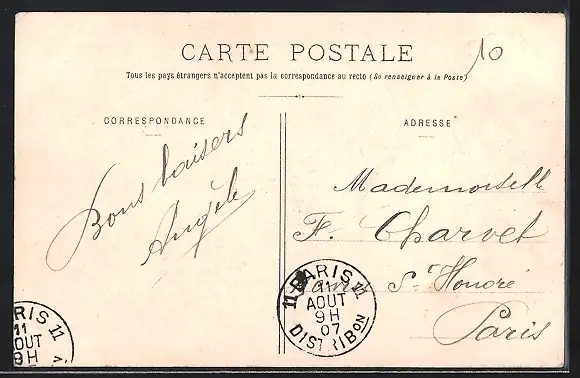 CARTE POSTALE
10
Tous les pays étrangers n'acceptent pas la correspondance au recto (Se renseigner à la Poste)
CORRESPONDANCE
Bons baisers
Angèle
ADRESSE
Mademoiselle
F. Charvet
St Honoré
Paris
PARIS 11
11
AOUT
9H
07
DISTRIBON
RIS 11
11
OUT
9H